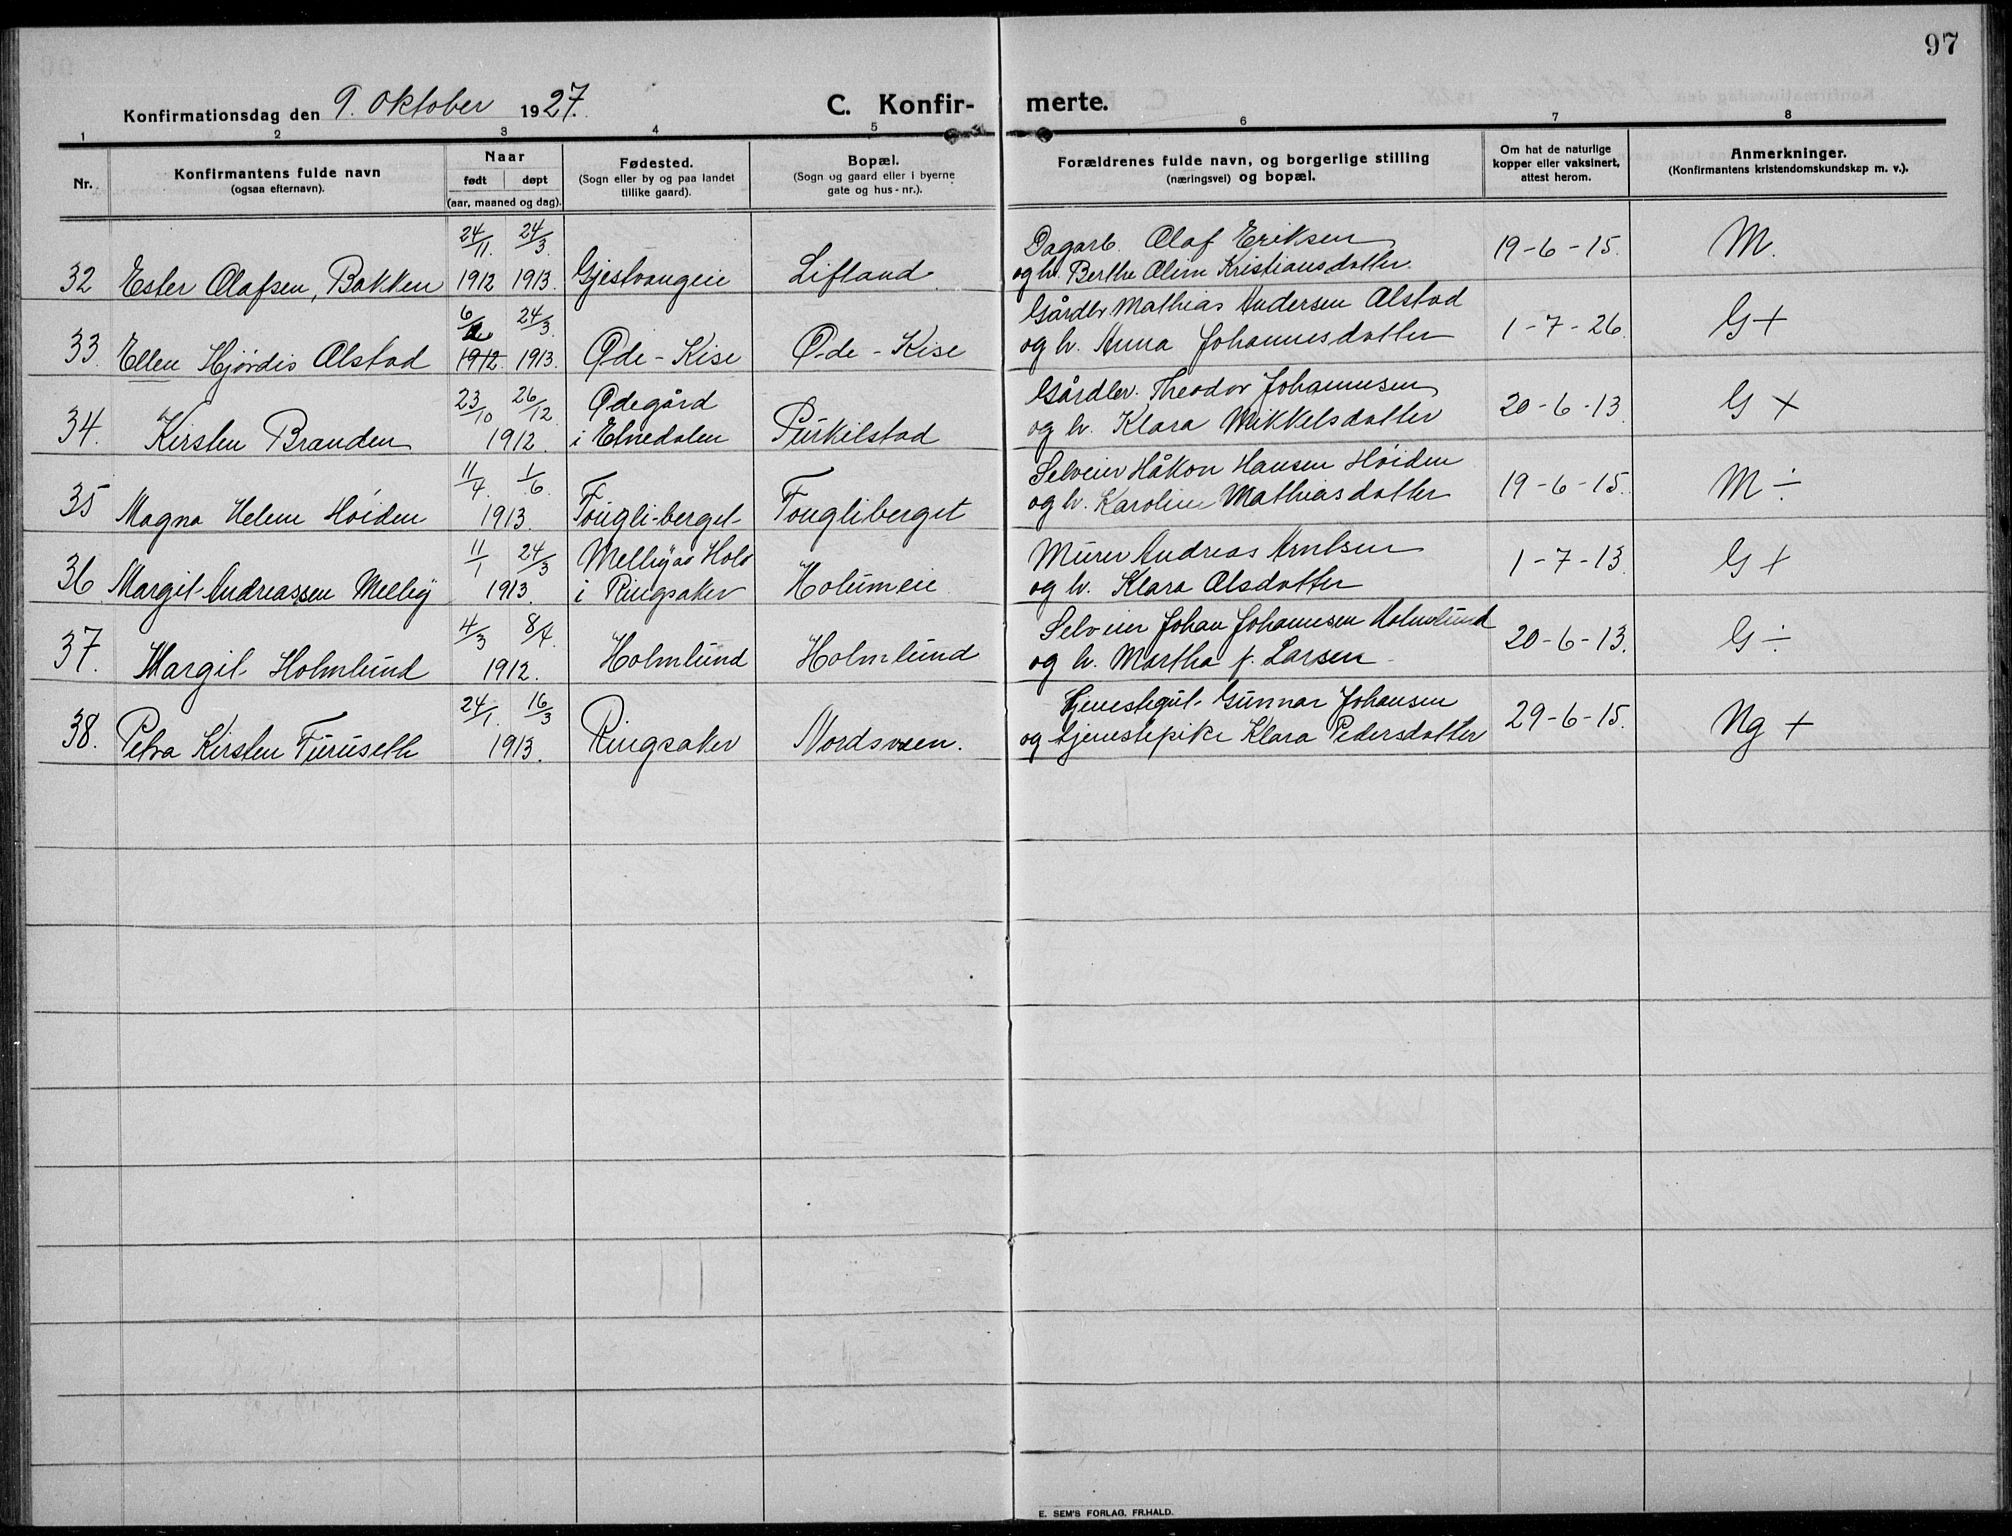 97
Konfirmationsdag den 9. oktober 1927.
C. Konfir- merte.
1 2 3 4 5 6 7 8
Nr.
Konfirmantens fulde navn
(ogsaa efternavn).
Naar
født døpt
(aar, maaned og dag).
Fødested.
(Sogn eller by og paa landet
tillike gaard).
Bopæl.
(Sogn og gaard eller i byerne
gate og hus-nr.).
Forældrenes fulde navn, og borgerlige stilling
(næringsvei) og bopæl.
Om hat de naturlige
kopper eller vaksinert,
attest herom.
Anmerkninger.
(Konfirmantens kristendomskundskap m. v.).
24/11. 24/3. Dagarb. Olaf Eriksen 19-6-15. M.
32 Ester Olafsen, Bakken 1912 1913. Gjestvangeie Lifland. og h. Berthe Oline Kristiansdatter.
6/ 24/3. Gårdbr Mathias Andersen Alstad 1-7-26. G+
33. Ellen Hjørdis Alstad 1912. 1913. Øde-Kise Øde-Kise og h. Anna Johannesdatter
23/10 26/12 Ødegård Gårdbr. Theodor Johannesen 20-6-13 G +
34. Kirsten Branden 1912. i Elnedalen Purkilstad og h. Klara Mikkelsdatter
11/4. 1/6. Selveier Håkon Hansen Høiden 19-6-15. M ÷
35 Magna Helene Høiden 1913. Fougli-berget Fougliberget og h. Karoline Mathiasdatter
11/1 24/3 Melbyås Hols Murer Andreas Arntsen 1-7-13. G +
36. Margit Andreassen Melby 1913. i Ringsaker Holumeie og h. Klara Olsdatter
4/3 8/4. Selveier Johan Johannesen Holmlund 20-6-13. G ÷
37. Margit Holmlund 1912. Holmlund Holmlund og h. Martha f. Larsen
24/1. 16/3 Tjenestegut Gunnar Johansen 29-6-15. Ng +
38. Petra Kirsten Furuseth 1913. Ringsaker Nordsveen. og tjenestepike Klara Pedersdatter
E. SEM'S FORLAG, FR.HALD.